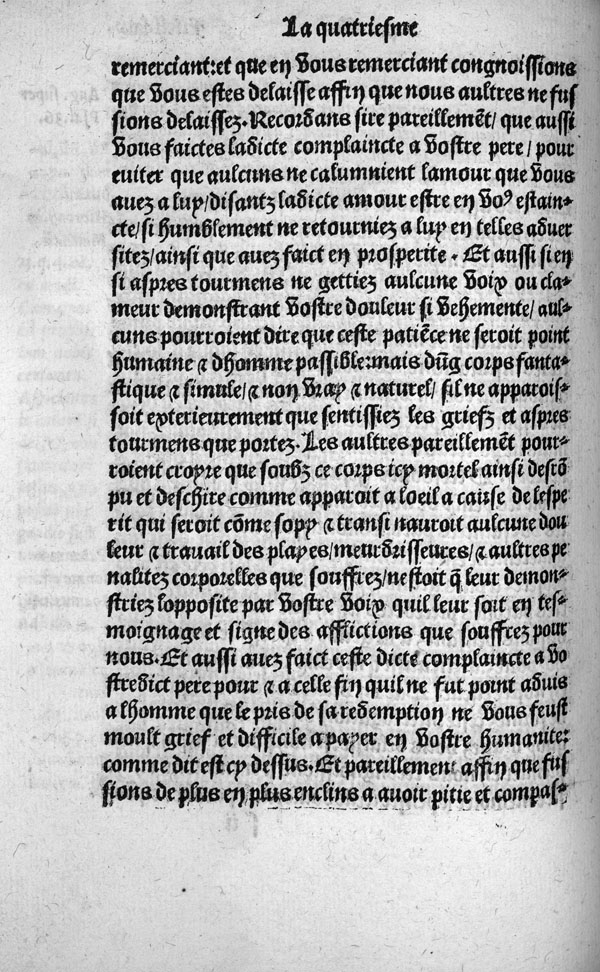 La quatriesme
remerciant:et que en vous remerciant congnoissions
que vous estes delaisse affin que nous aultres ne fus
sions delaissez. Recordans sire pareillemẽt/ que aussi
vous faictes ladicte complaincte a vostre pere/ pour
euiter que aulcuns ne calumnient lamour que vous
auez a luy/disantz ladicte amour estre en voꝰ estain-
cte/si humblement ne retourniez a luy en telles aduer
sitez/ainsi que auez faict en prosperite. Et aussi si en
si aspres tourmens ne gettiez aulcune voix ou cla-
meur demonstrant vostre douleur si vehemente/ aul-
cuns pourroient dire que ceste patiẽce ne seroit point
humaine ⁊ dhomme passible:mais dũg corps fanta-
stique ⁊ simule/⁊ non vray ⁊ naturel/ sil ne apparois-
soit exterieurement que sentissiez les griefz et aspres
tourmens que portez. Les aultres pareillemẽt pour-
roient croyre que soubz ce corps icy mortel ainsi desrõ
pu et deschire comme apparoit a loeil a cause de lespe
rit qui seroit cõme sopy ⁊ transi nauroit aulcune dou
leur ⁊ trauail des playes/meurdrisseures/⁊ aultres pe
nalitez corporelles que souffrez/nestoit q̃ leur demon-
striez lopposite par vostre voix quil leur soit en tes-
moignage et signe des afflictions que souffrez pour
nous. Et aussi auez faict ceste dicte complaincte a vo
stredict pere pour ⁊ a celle fin quil ne fut point aduis
a lhomme que le pris de sa redemption ne vous feust
moult grief et difficile a payer en vostre humanite:
comme dit est cy dessus. Et pareillement affin que fus
sions de plus en plus enclins a auoir pitie et compas-